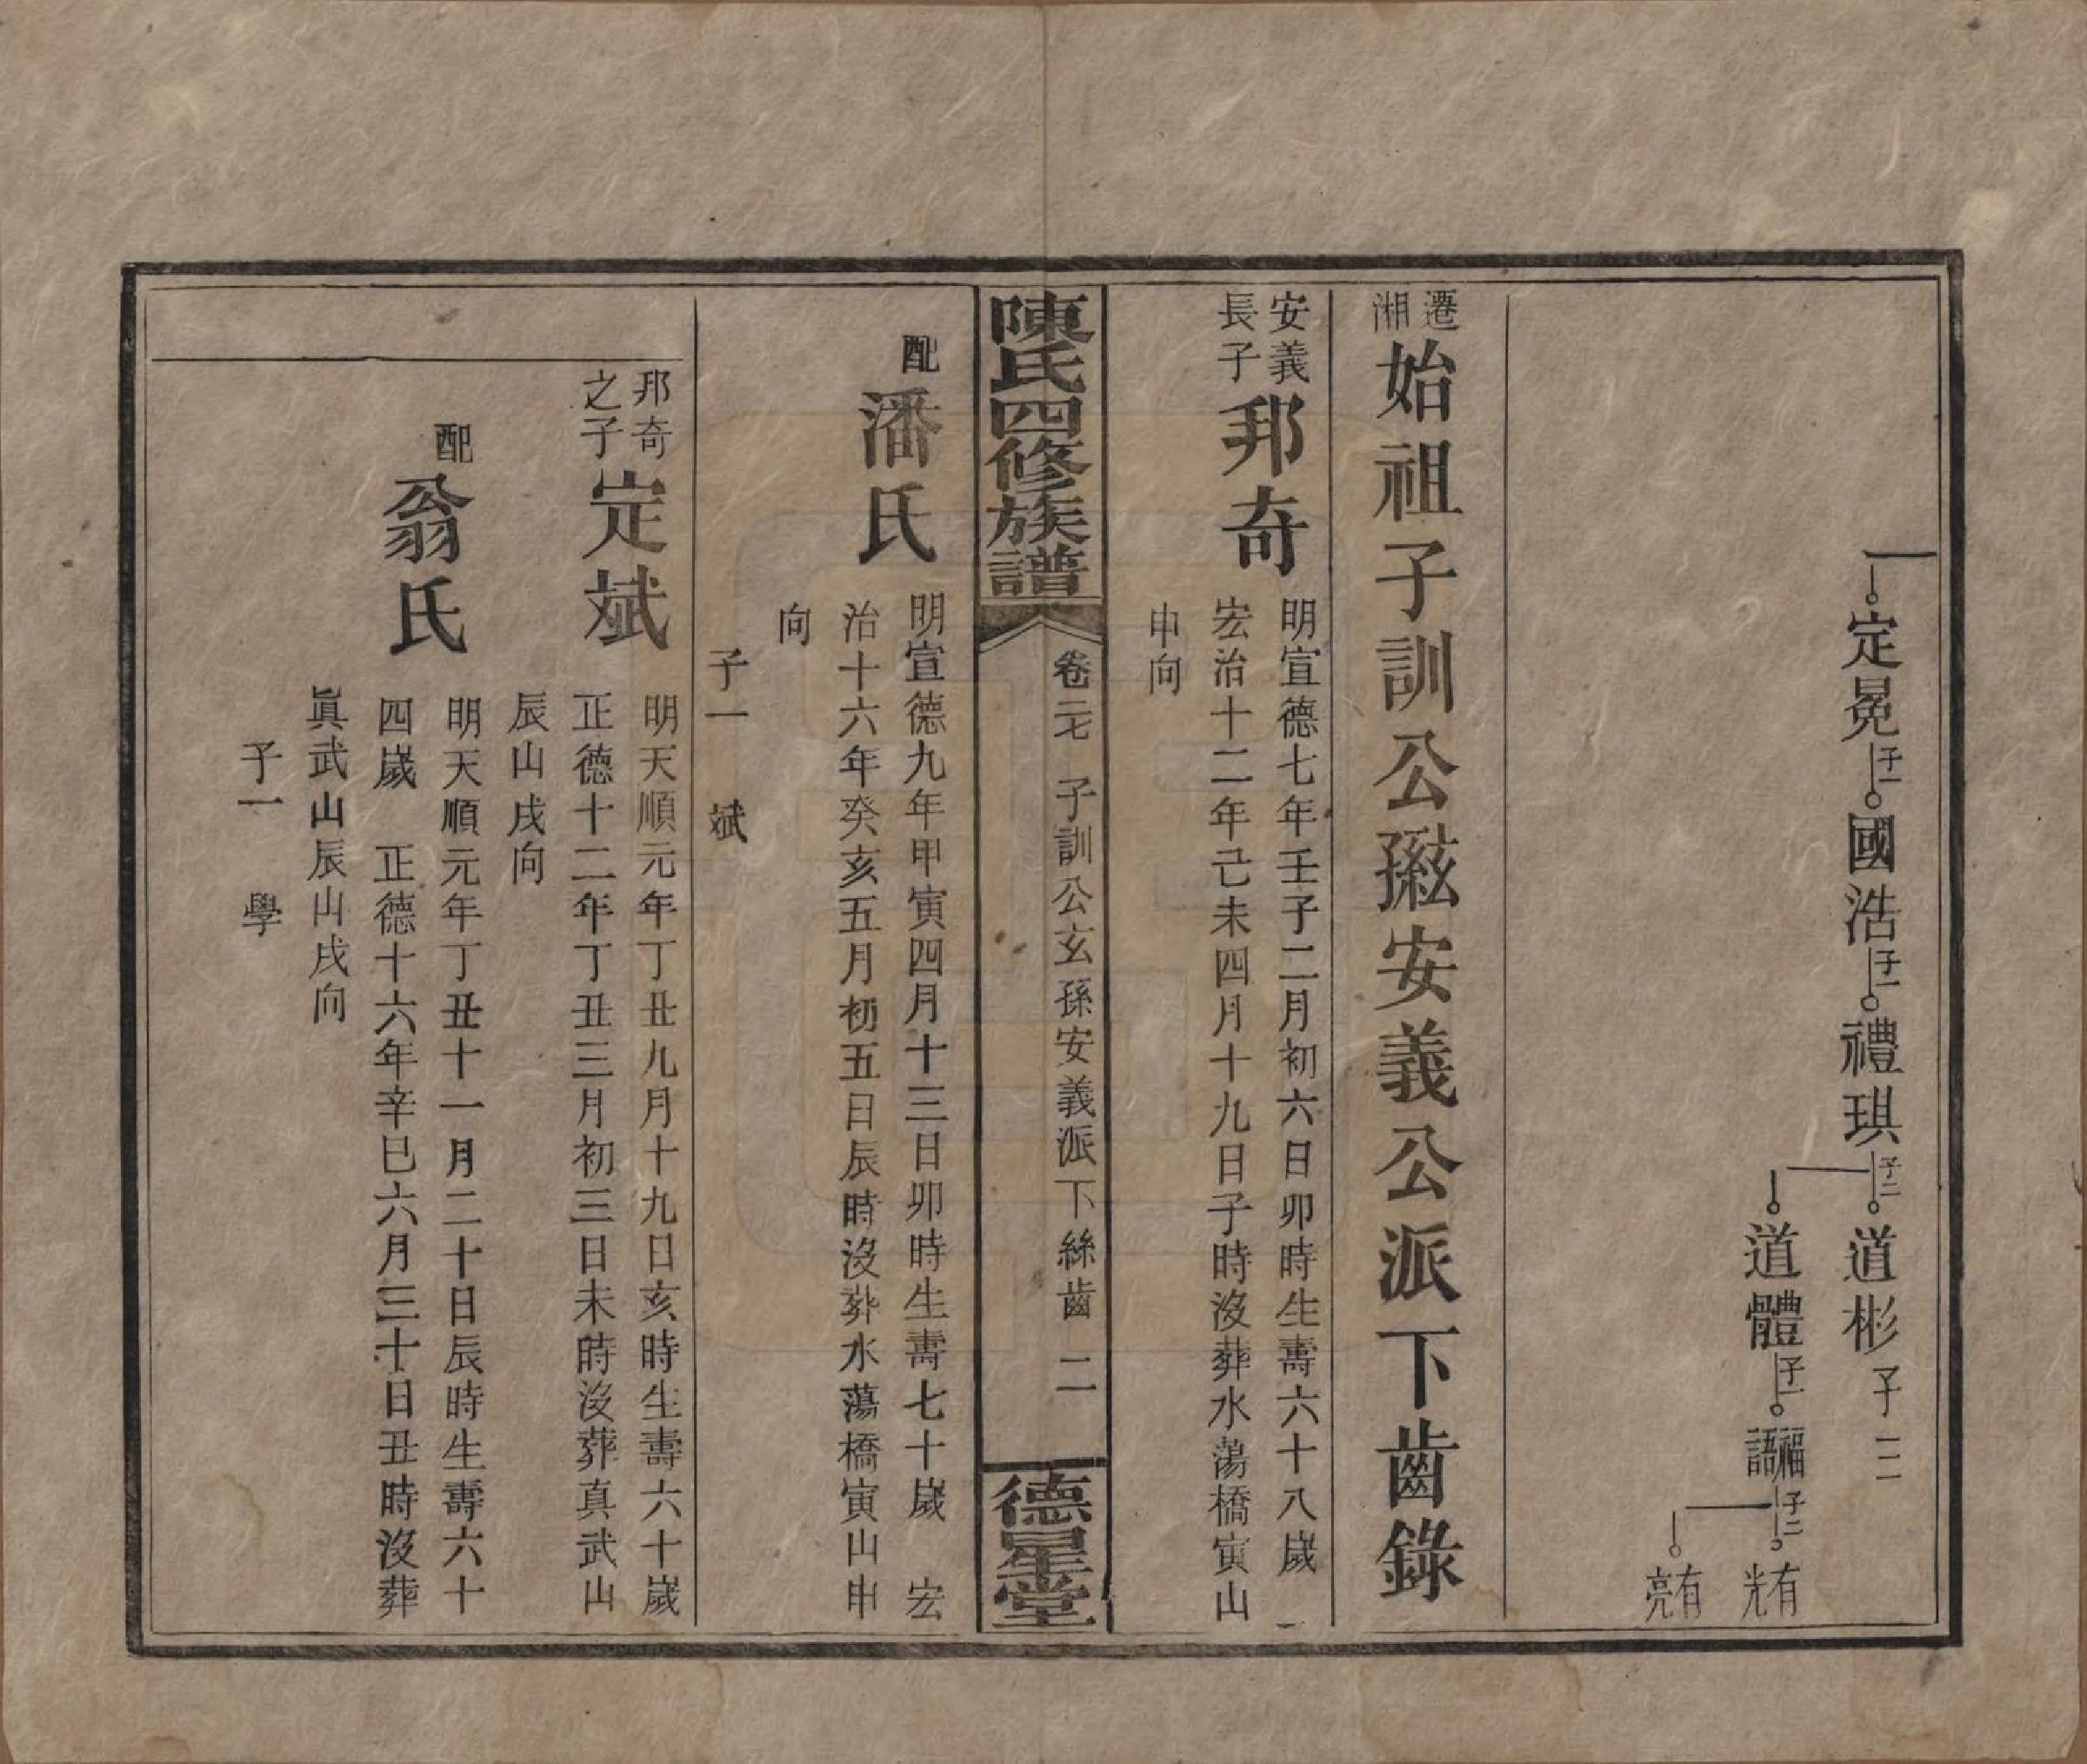 定冕子一國浩子一禮琪子二道彬子二
道體子一福語子二有光
有亮
遷湘始祖子訓公玄孫安義公派下齒錄
安義長子邦奇
明宣德七年壬子二月初六日卯時生壽六十八歲
宏治十二年己未四月十九日子時沒葬水蕩橋寅山
申向
陳氏四修族譜
卷二七 子訓公玄孫安義派下絲齒 二
德星堂
配潘氏
明宣德九年甲寅四月十三日卯時生壽七十歲 宏
治十六年癸亥五月初五日辰時沒葬水蕩橋寅山申
向
子一 斌
邦奇之子定斌
明天順元年丁丑九月十九日亥時生壽六十歲
正德十二年丁丑三月初三日未時沒葬真武山
辰山戌向
配翁氏
明天順元年丁丑十一月二十日辰時生壽六十
四歲 正德十六年辛巳六月三十日丑時沒葬
眞武山辰山戌向
子一 學